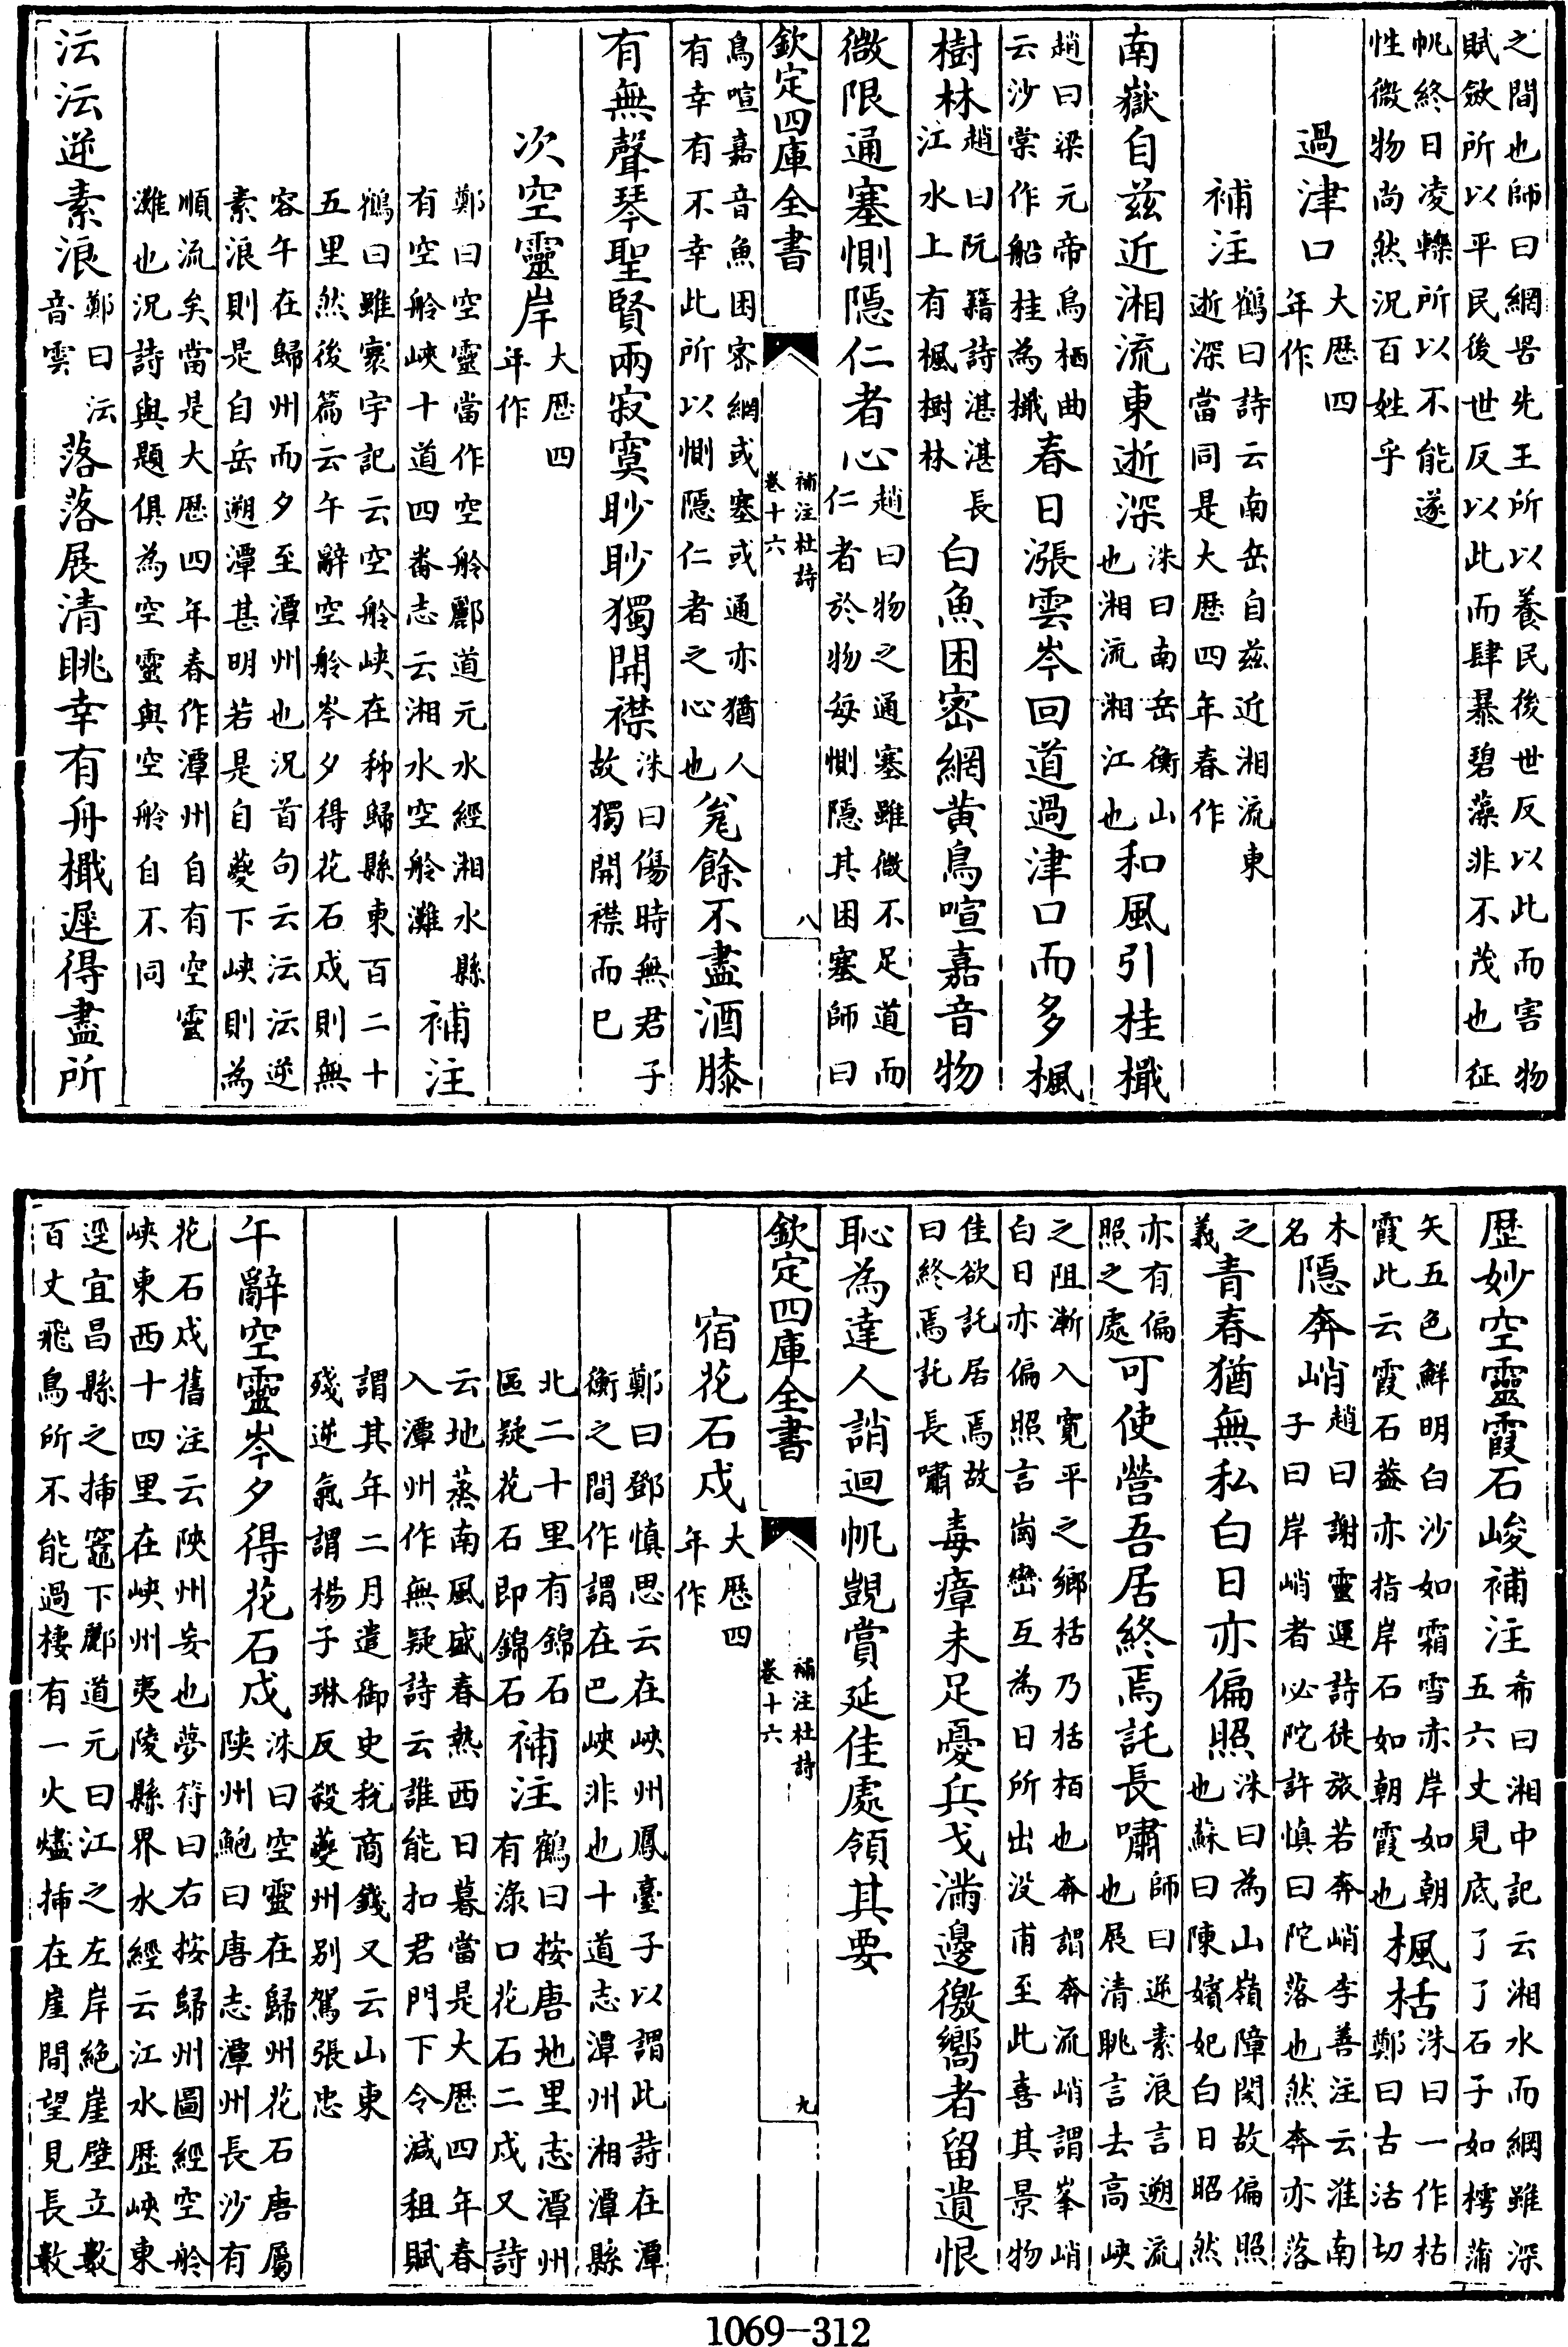 之間也師曰網罟先王所以養民後世反以此而害物
賦斂所以平民後世反以此而肆暴碧藻非不茂也征
帆終日凌轢所以不能遂
性微物尚然況百姓乎
過津口大歴四年作
補注鶴曰詩云南岳自兹近湘流東逝深當同是大歴四年春作
南嶽自兹近湘流東逝深洙曰南岳衡山也湘流湘江也和風引桂檝
趙曰梁元帝烏栖曲云沙棠作船桂為檝春日漲雲岑回道過津口而多楓
樹林趙曰阮籍詩湛湛長江水上有楓樹林白魚困宻網黄鳥喧嘉音物
微限通塞惻隠仁者心趙曰物之通塞雖微不足道而仁者於物每惻隠其困塞師曰
欽定四庫全書
補注杜詩
卷十六
八
鳥喧嘉音魚困宻網或塞或通亦猶人有幸有不幸此所以惻隠仁者之心也甕餘不盡酒膝
有無聲琴聖賢兩寂寞眇眇獨開襟洙曰傷時無君子故獨開襟而已
次空靈岸大歴四年作
鄭曰空靈當作空舲酈道元水經湘水縣有空舲峽十道四番志云湘水空舲灘補注
鶴曰雖寰宇記云空舲峽在秭歸縣東百二十
五里然後篇云午辭空舲岑夕得花石戍則無
容午在歸州而夕至潭州也況首句云沄沄逆
素浪則是自岳遡潭甚明若是自夔下峽則為
順流矣當是大歴四年春作潭州自有空靈
灘也況詩與題俱為空靈與空舲自不同
沄沄逆素浪鄭曰沄音雲落落展清眺幸有舟檝遲得盡所
歴妙空靈霞石峻補注希曰湘中記云湘水而網雖深五六丈見底了了石子如樗蒲
矢五色鮮明白沙如霜雪亦岸如朝霞此云霞石葢亦指岸石如朝霞也楓栝洙曰一作枯鄭曰古活切
木名隠奔峭趙曰謝靈運詩徒旅若奔峭李善注云淮南子曰岸峭者必陀許慎曰陀落也然奔亦落
之義青春猶無私白日亦偏照洙曰為山嶺障閡故偏照也蘇曰陳嬪妃白日昭然
亦有偏照之處可使營吾居終焉託長嘯師曰逆素浪言遡流也展清眺言去高峽
之阻漸入寛平之鄉栝乃栝栢也奔謂奔流峭謂峯峭
白日亦偏照言崗巒互為日所出没甫至此喜其景物
佳欲託居焉故曰終焉託長嘯毒瘴未足憂兵戈滿邊徼嚮者留遺恨
恥為達人誚迴帆覬賞延佳處領其要
欽定四庫全書
補注杜詩
卷十六
九
宿花石戍大歴四年作
鄭曰鄧慎思云在峽州鳳臺子以謂此詩在潭
衡之間作謂在巴峽非也十道志潭州湘潭縣
北二十里有錦石區疑花石即錦石補注鶴曰按唐地里志潭州有渌口花石二戍又詩
云地蒸南風盛春熱西日暮當是大歴四年春
入潭州作無疑詩云誰能扣君門下令減租賦
謂其年二月遣御史税商錢又云山東
殘逆氣謂楊子琳反殺夔州别駕張忠
午辭空靈岑夕得花石戍洙曰空靈在歸州花石唐屬陜州鮑曰唐志潭州長沙有
花石戍舊注云陜州妄也夢符曰右按歸州圖經空舲
峽東西十四里在峽州夷陵縣界水經云江水歴峽東
逕宜昌縣之揷竈下酈道元曰江之左岸絶崖壁立數
百丈飛鳥所不能過棲有一火燼揷在崖間望見長數
1069-312